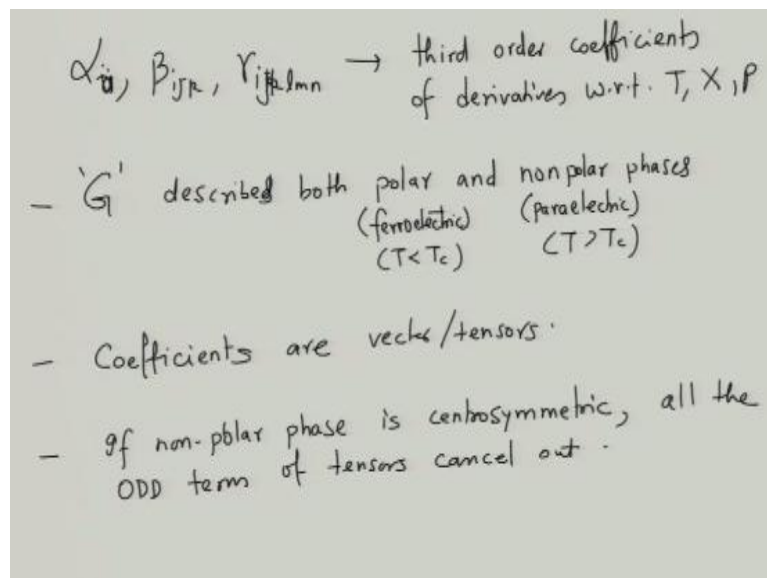 αij, βijk, γijklmn → third order coefficients
of derivatives w.r.t. T, X, P
– 'G' described both polar and nonpolar phases
(ferroelectric) (paraelectric)
(T < Tc) (T > Tc)
– Coefficients are vector/tensors.
– If non-polar phase is centrosymmetric, all the
ODD term of tensors cancel out.